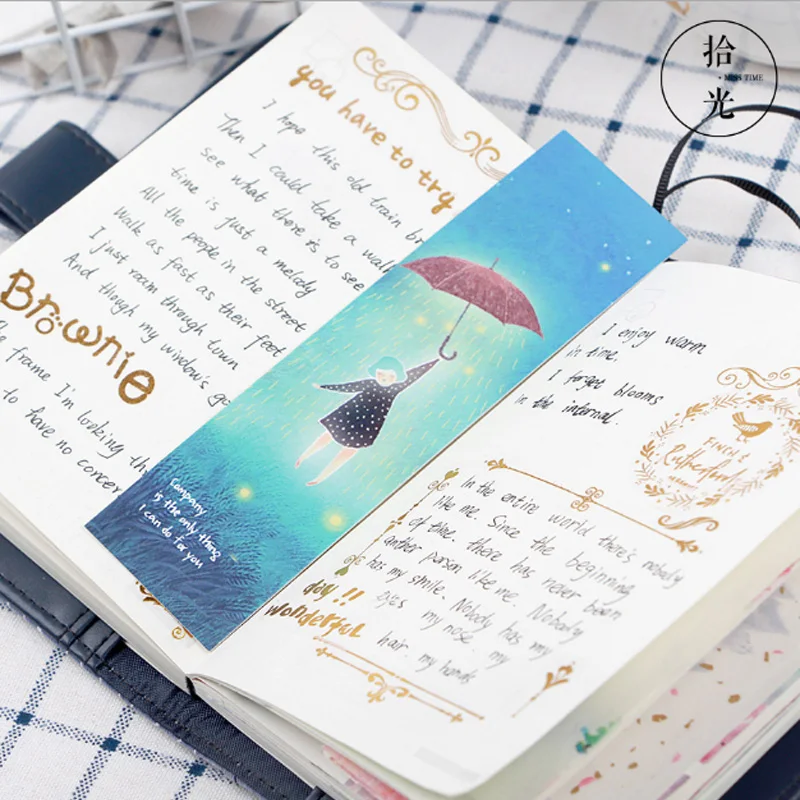 拾光
• MISS TIME
you have to try
I hope this old train br
Then I could take a walk
see what there is to see
time is just a melody
All the people in the street
Walk as fast as their feet
I just roam through town
And though my window's go
Brownie
he frame I'm looking th
to have no concer
Company
is the only thing
I can do for you
I enjoy warm
in time.
I forget blooms
in the internal.
FINCH &
In the entire world there's nobody
like me. Since the beginning
of time. there has never been
another person like me. Nobody
has my smile. Nobody has my
eyes my nose. my
hair. my hands
day!!
wonderful